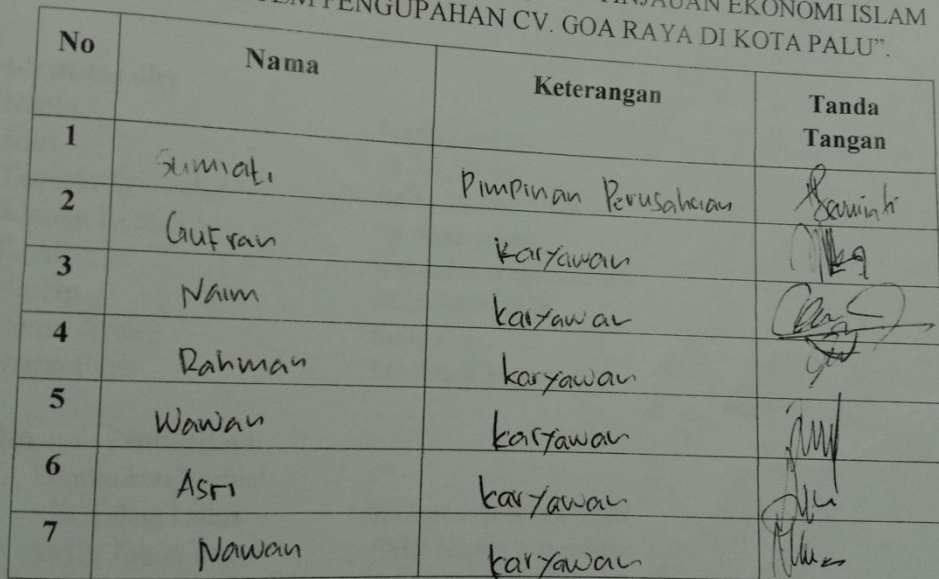 TINJAUAN EKONOMI ISLAM
PENGUPAHAN CV. GOA RAYA DI KOTA PALU".
No Nama Keterangan Tanda Tangan
1 Sumiati Pimpinan Perusahaan
2 Gufran Karyawan
3 Naim karyawan
4 Rahman karyawan
5 Wawan karyawan
6 Asri karyawan
7 Nawan karyawan